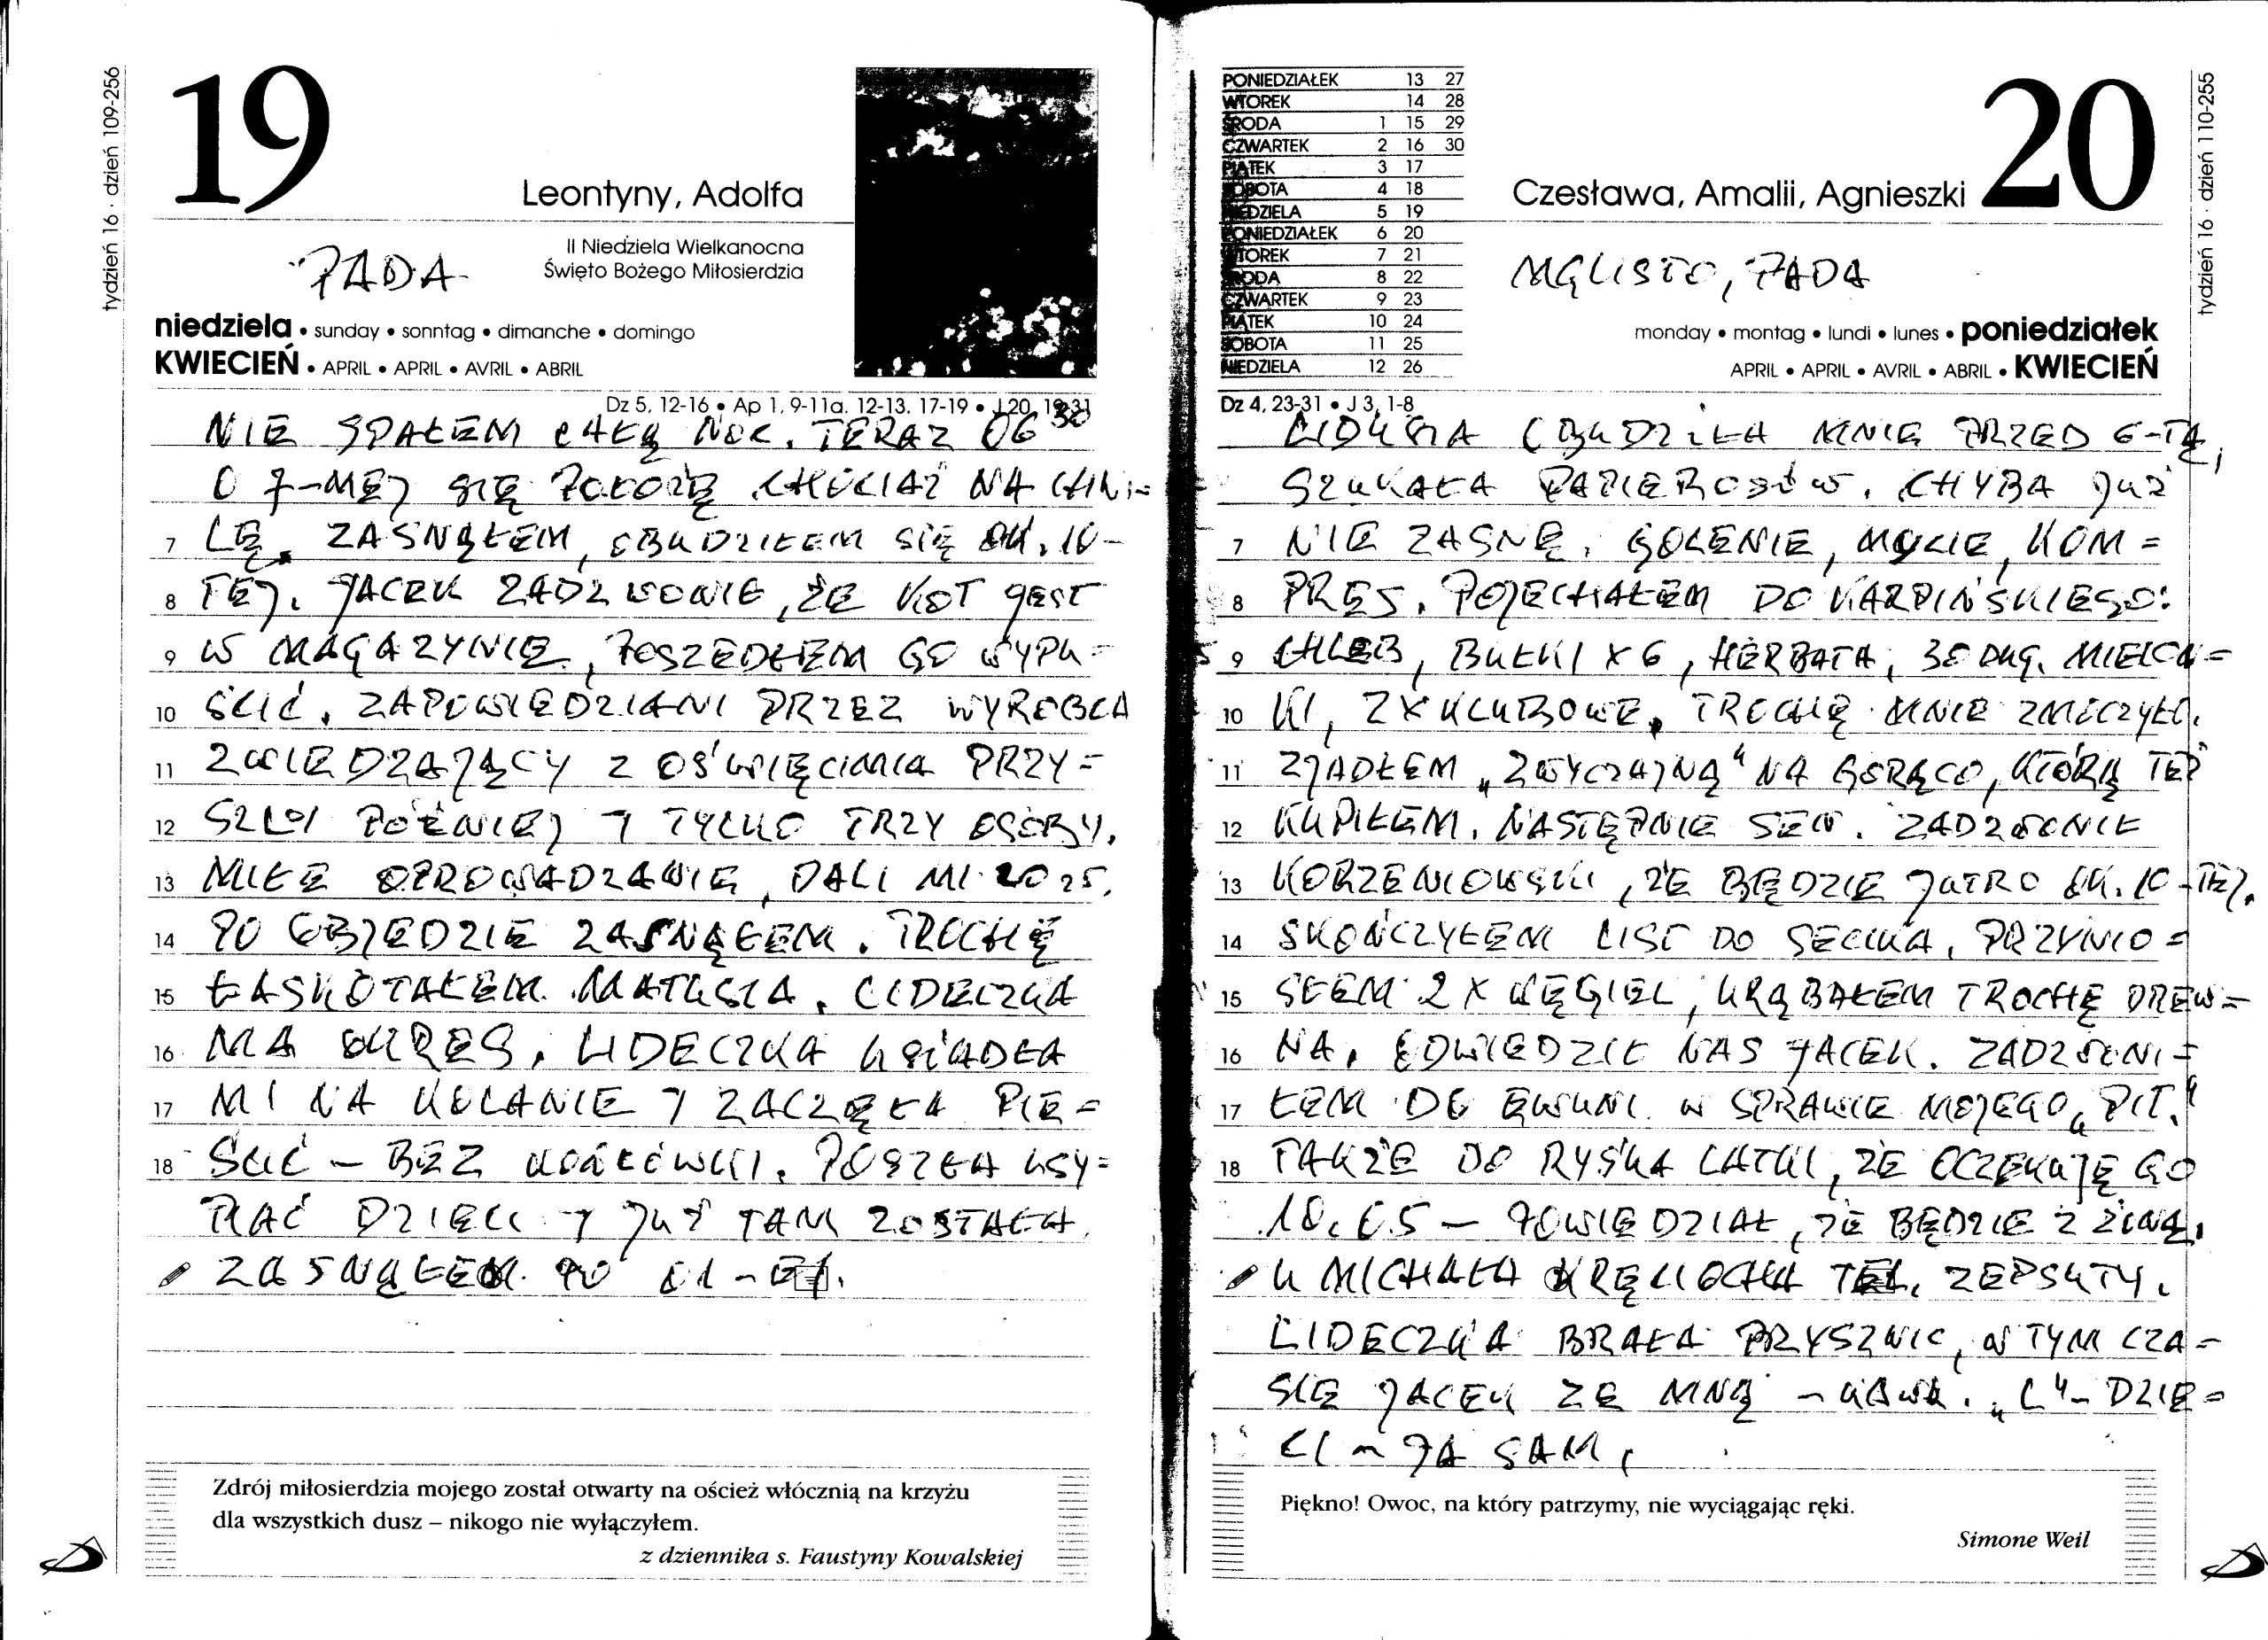 tydzień 16 · dzień 109-256
19
Leontyny, Adolfa
II Niedziela Wielkanocna
Święto Bożego Miłosierdzia
PADA
niedziela • sunday • sonntag • dimanche • domingo
KWIECIEŃ • APRIL • APRIL • AVRIL • ABRIL
Dz 5, 12-16 • Ap 1, 9-11a. 12-13. 17-19 • J 20, 19-31
NIE SPAŁEM CAŁĄ NOC. TERAZ 06 30
O 7-MEJ SIĘ POŁOŻĘ CHOCIAŻ NA CHWI=
7 LĘ. ZASNĄŁEM, OBUDZIŁEM SIĘ OK. 10-
8 TEJ. JACEK ZADZWONIŁ, ŻE KOT JEST
9 W MAGAZYNIE, POSZEDŁEM GO WYPU=
10 ŚCIĆ. ZAPOWIEDZIANI PRZEZ WYROBCA
11 ZWIEDZAJĄCY Z OŚWIĘCIMIA PRZY=
12 SZLI PÓŹNIEJ I TYLKO TRZY OSOBY.
13 MIŁE OPROWADZANIE, DALI MI 20 zł.
14 PO OBJEDZIE ZASNĄŁEM. TROCHĘ
15 ŁASKOTAŁEM MATUSIA. LIDECZKA
16 MA OKRES. LIDECZKA USIADŁA
17 MI NA KOLANIE I ZACZĘŁA PIE=
18 ŚCIĆ – BEZ KOŃCÓWKI. POSZŁA USY=
PIAĆ DZIECI I JUŻ TAM ZOSTAŁA.
ZASNĄŁEM PO 01-EJ.
Zdrój miłosierdzia mojego został otwarty na oścież włócznią na krzyżu
dla wszystkich dusz – nikogo nie wyłączyłem.
z dziennika s. Faustyny Kowalskiej
PONIEDZIAŁEK 13 27
WTOREK 14 28
ŚRODA 1 15 29
CZWARTEK 2 16 30
PIĄTEK 3 17
SOBOTA 4 18
NIEDZIELA 5 19
PONIEDZIAŁEK 6 20
WTOREK 7 21
ŚRODA 8 22
CZWARTEK 9 23
PIĄTEK 10 24
SOBOTA 11 25
NIEDZIELA 12 26
20
Czesława, Amalii, Agnieszki
tydzień 16 · dzień 110-255
MGLISTO, PADA
monday • montag • lundi • lunes • poniedziałek
APRIL • APRIL • AVRIL • ABRIL • KWIECIEŃ
Dz 4, 23-31 • J 3, 1-8
LIDUSIA OBUDZIŁA MNIE PRZED 6-TĄ,
SZUKAŁA PAPIEROSÓW. CHYBA JUŻ
7 NIE ZASNĘ. GOLENIE, MYCIE, KOM=
8 PRES. POJECHAŁEM DO KARPIŃSKIEGO:
9 CHLEB, BUŁKI X 6, HERBATA, 30 DKG. MIELON=
10 KI, 2X KLUBOWE. TROCHĘ MNIE ZMĘCZYŁO.
11 ZJADŁEM „ZWYCZAJNĄ" NA GORĄCO, KTÓRĄ TEŻ
12 KUPIŁEM. NASTĘPNIE SEN. ZADZWONIŁ
13 KORZENIOWSKI, ŻE BĘDZIE JUTRO OK. 10-TEJ.
14 SKOŃCZYŁEM LIST DO SECIKA, PRZYNIO=
15 SŁEM 2 X WĘGIEL, URĄBAŁEM TROCHĘ DREW=
16 NA. ODWIEDZIŁ NAS JACEK. ZADZWONI=
17 ŁEM DO EWUNI W SPRAWIE MOJEGO „PIT."
18 TAKŻE DO RYŚKA LATKI, ŻE OCZEKUJĘ GO
10.05 – POWIEDZIAŁ, ŻE BĘDZIE Z ŻONĄ.
U MICHAŁA KRĘCIOCHA TEL. ZEPSUTY.
LIDECZKA BRAŁA PRYSZNIC, W TYM CZA=
SIE JACEK ZE MNĄ – KAWA. „L"– DZIE=
CI – JA SAM.
Piękno! Owoc, na który patrzymy, nie wyciągając ręki.
Simone Weil